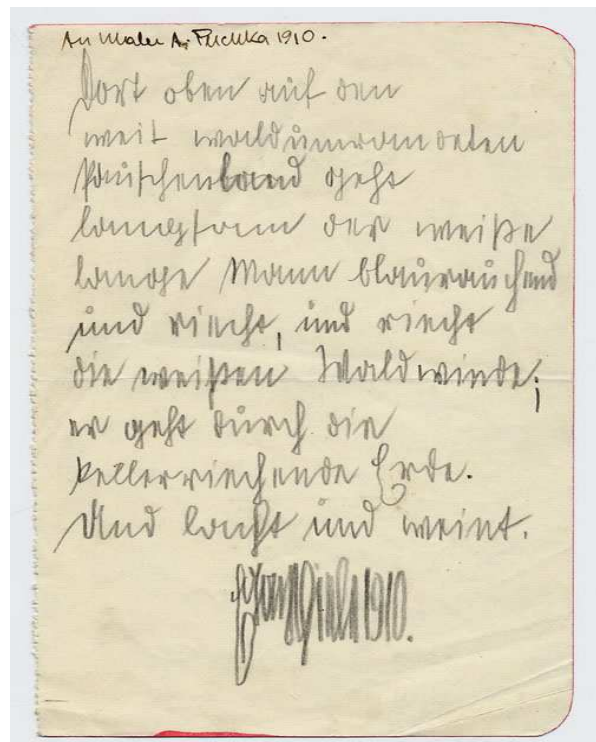 An Maler A. Peschka 1910.
Dort oben auf den
weit waldumrandeten
rauschenland geht
langsam der weiße
lange Mann blaurauchend
und riecht, und riecht
die weißen Waldwinde;
er geht durch die
kellerriechende Erde.
Und lacht und weint.
Egon Schiele 1910.